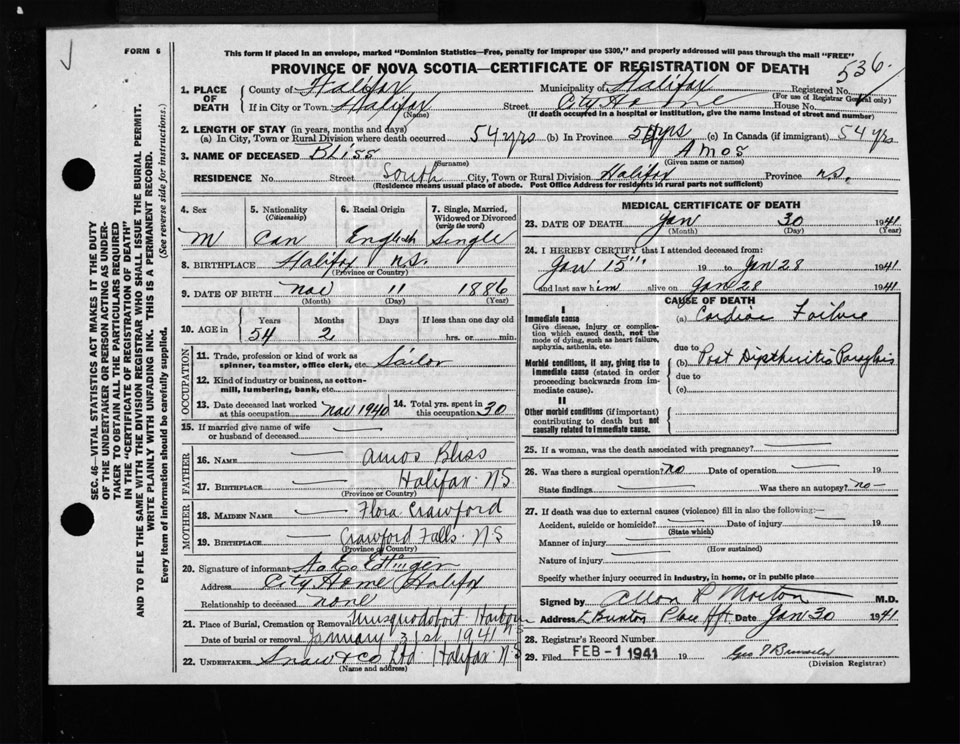 FORM 6
This form if placed in an envelope, marked "Dominion Statistics—Free, penalty for improper use $300," and properly addressed will pass through the mail "FREE"
PROVINCE OF NOVA SCOTIA—CERTIFICATE OF REGISTRATION OF DEATH
536
SEC. 46—VITAL STATISTICS ACT MAKES IT THE DUTY
OF THE UNDERTAKER OR PERSON ACTING AS UNDER-
TAKER TO OBTAIN ALL THE PARTICULARS REQUIRED
IN THE "CERTIFICATE OF REGISTRATION OF DEATH"
AND TO FILE THE SAME WITH THE DIVISION REGISTRAR WHO SHALL ISSUE THE BURIAL PERMIT.
WRITE PLAINLY WITH UNFADING INK. THIS IS A PERMANENT RECORD.
Every item of information should be carefully supplied. (See reverse side for instruction.)
1. PLACE OF DEATH County of Halifax Municipality of Halifax Registered No.
(For use of Registrar General only)
If in City or Town Halifax Street City Home House No.
(Name) (If death occurred in a hospital or institution, give the name instead of street and number)
2. LENGTH OF STAY (in years, months and days)
(a) In City, Town or Rural Division where death occurred 54 yrs (b) In Province 54 yrs (c) In Canada (if immigrant) 54 yrs
3. NAME OF DECEASED Bliss Amos
(Surname) (Given name or names)
RESIDENCE No. Street South City, Town or Rural Division Halifax Province N.S.
(Residence means usual place of abode. Post Office Address for residents in rural parts not sufficient)
4. Sex 5. Nationality (Citizenship) 6. Racial Origin 7. Single, Married, Widowed or Divorced (write the word)
M Can English Single
8. BIRTHPLACE Halifax N.S.
(Province or Country)
9. DATE OF BIRTH Nov 11 1886
(Month) (Day) (Year)
10. AGE in Years Months Days If less than one day old
54 2 hrs. or min.
OCCUPATION
11. Trade, profession or kind of work as spinner, teamster, office clerk, etc. Sailor
12. Kind of industry or business, as cotton-mill, lumbering, bank, etc.
13. Date deceased last worked at this occupation Nov 1940 14. Total yrs. spent in this occupation 30
15. If married give name of wife or husband of deceased
FATHER
16. NAME Amos Bliss
17. BIRTHPLACE Halifax N.S
(Province or Country)
MOTHER
18. MAIDEN NAME Flora Crawford
19. BIRTHPLACE Crawford Falls N.S
(Province or Country)
20. Signature of informant A. E. Ettinger
Address City Home Halifax
Relationship to deceased none
21. Place of Burial, Cremation or Removal Musquodoboit Harbour N.S
Date of burial or removal January 31st, 1941
22. UNDERTAKER Snow & Co Ltd Halifax N.S
(Name and address)
MEDICAL CERTIFICATE OF DEATH
23. DATE OF DEATH Jan 30 1941
(Month) (Day) (Year)
24. I HEREBY CERTIFY that I attended deceased from:
Jan 15 19 to Jan 28 1941
and last saw him alive on Jan 28 1941
CAUSE OF DEATH
I
Immediate cause (a) Cardiac Failure
Give disease, injury or complication which caused death, not the mode of dying, such as heart failure, asphyxia, asthenia, etc.
due to
Morbid conditions, if any, giving rise to immediate cause (stated in order proceeding backwards from immediate cause).
(b) Post Diptheritic Paralysis
due to
(c)
II
Other morbid conditions (if important) contributing to death but not causally related to immediate cause.
25. If a woman, was the death associated with pregnancy?
26. Was there a surgical operation? no Date of operation 19
State findings Was there an autopsy? no
27. If death was due to external causes (violence) fill in also the following:—
Accident, suicide or homicide? Date of injury 19
(Specify which)
Manner of injury
(How sustained)
Nature of injury
Specify whether injury occurred in industry, in home, or in public place
Signed by Allan R Morton M.D.
Address Place Hfx Date Jan 30 1941
28. Registrar's Record Number
29. Filed FEB - 1 1941 19
(Division Registrar)